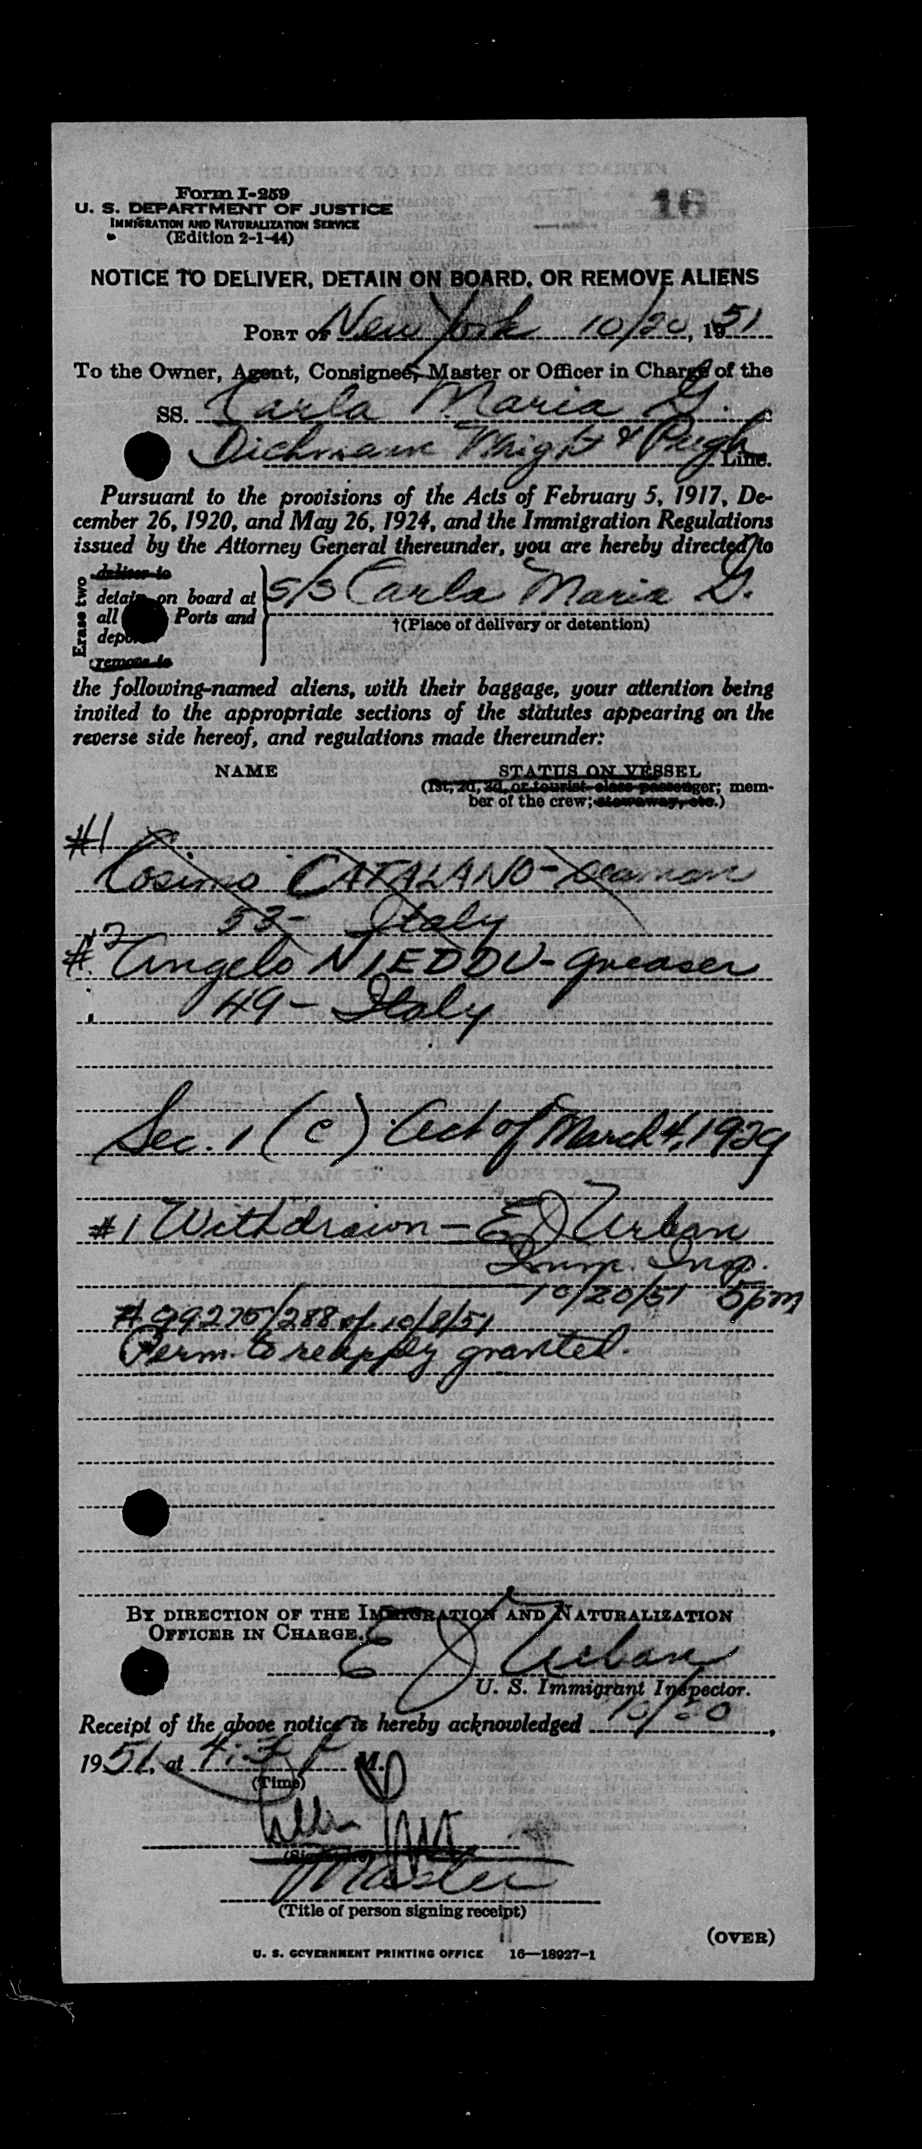 Form I-259
16
U. S. DEPARTMENT OF JUSTICE
IMMIGRATION AND NATURALIZATION SERVICE
(Edition 2-1-44)
NOTICE TO DELIVER, DETAIN ON BOARD, OR REMOVE ALIENS
PORT OF New York 10/20, 1951
To the Owner, Agent, Consignee, Master or Officer in Charge of the
SS. Carla Maria G.
Dichmann Wright & Pugh Line.
Pursuant to the provisions of the Acts of February 5, 1917, De-
cember 26, 1920, and May 26, 1924, and the Immigration Regulations
issued by the Attorney General thereunder, you are hereby directed to
Erase two
deliver to
detain on board at
all Ports and
deport
remove to
S/S Carla Maria G.
†(Place of delivery or detention)
the following-named aliens, with their baggage, your attention being
invited to the appropriate sections of the statutes appearing on the
reverse side hereof, and regulations made thereunder:
NAME STATUS ON VESSEL
(1st, 2d, 3d, or tourist-class passenger; mem-
ber of the crew; stowaway, etc.)
#1
Cosimo CATALANO - seaman
53 - Italy
#2 Angelo NIEDDU - greaser
49 - Italy
Sec. 1 (c) Act of March 4, 1929
#1 Withdrawn - E J Urban
Imm. Insp.
10/20/51 5pm
# 99275/288 of 10/8/51
Perm. to reapply granted.
BY DIRECTION OF THE IMMIGRATION AND NATURALIZATION
OFFICER IN CHARGE.
E J Urban
U. S. Immigrant Inspector.
Receipt of the above notice is hereby acknowledged 10/20,
1951, at P M.
(Time)
(Signature)
Master
(Title of person signing receipt)
(OVER)
U. S. GOVERNMENT PRINTING OFFICE 16—18927-1